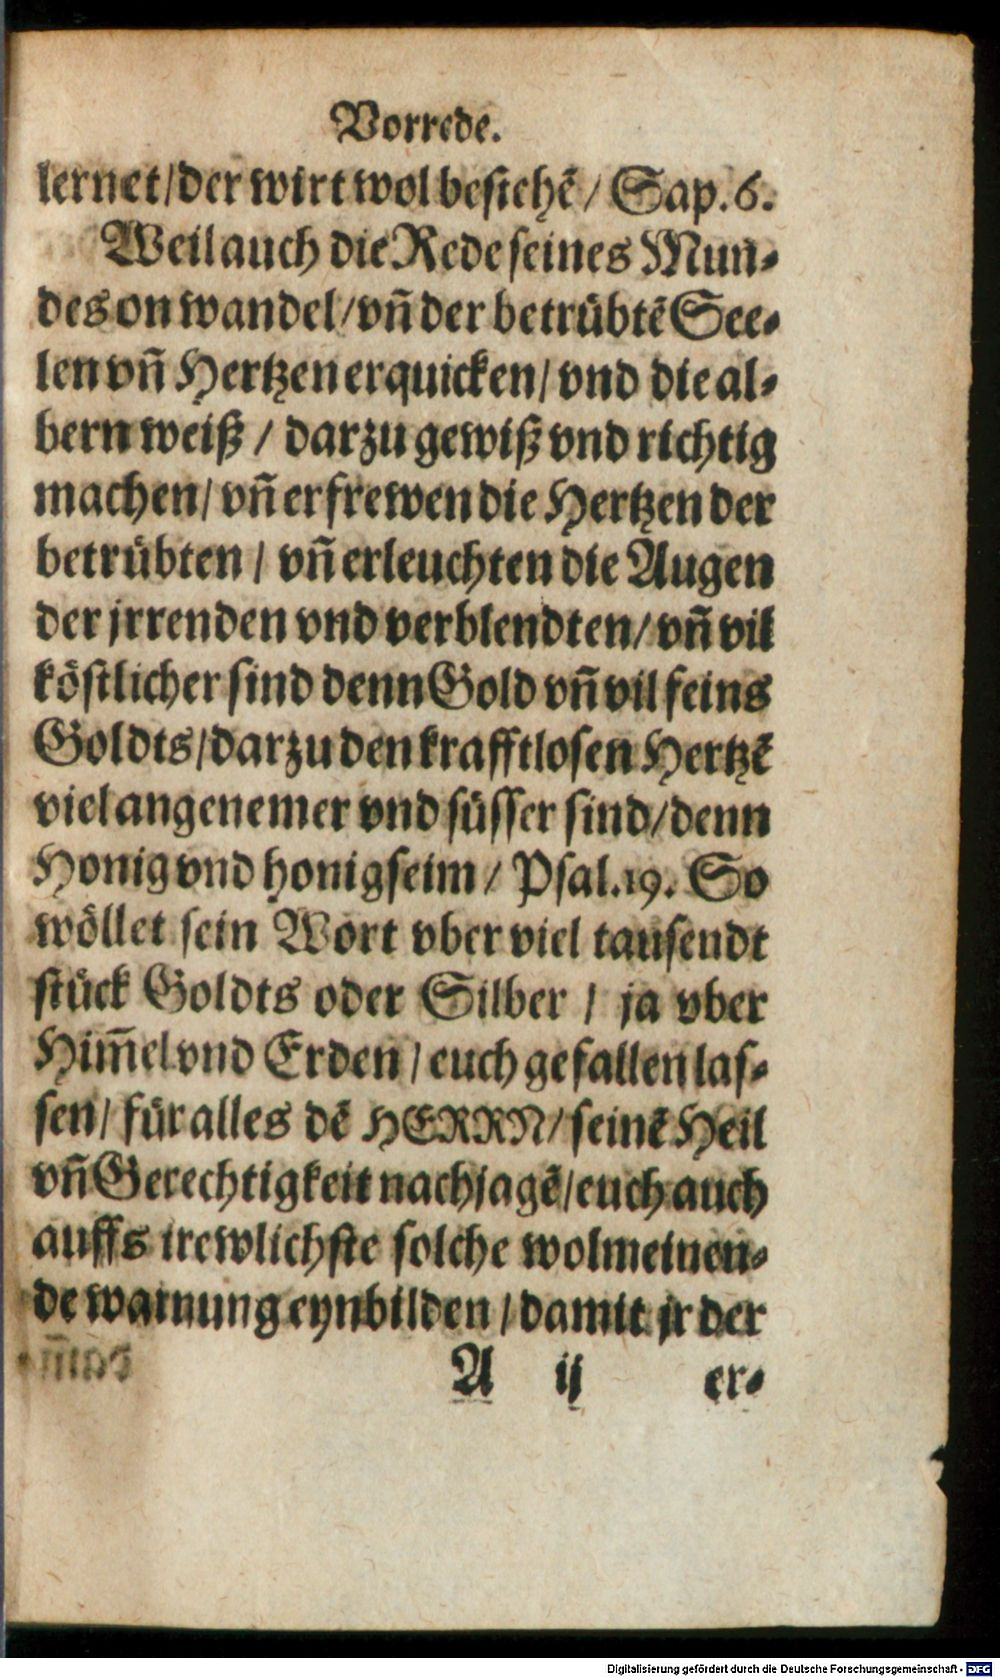 Vorrede.
lernet/der wirt wol bestehẽ / Sap. 6.
Weil auch die Rede seines Mun⸗
des on wandel/vñ der betrübtẽ See⸗
len vñ Hertzen erquicken/ vnd die al⸗
bern weiß / darzu gewiß vnd richtig
machen/ vñ erfrewen die Hertzen der
betrübten / vñ erleuchten die Augen
der jrrenden vnd verblendten/ vñ vil
köstlicher sind denn Gold vñ vil feins
Goldts/darzu den krafftlosen Hertzẽ
viel angenemer vnd süsser sind/denn
Honig vnd honigseim / Psal. 19. So
wöllet sein Wort vber viel tausendt
stück Goldts oder Silber / ja vber
Him̃el vnd Erden / euch gefallen las⸗
sen/ für alles dẽ HERRN/ seinẽ Heil
vñ Gerechtigkeit nachjagẽ/euch auch
auffs trewlichste solche wolmeinen⸗
de warnung eynbilden / damit jr der
A ij er⸗
Digitalisierung gefördert durch die Deutsche Forschungsgemeinschaft - DFG